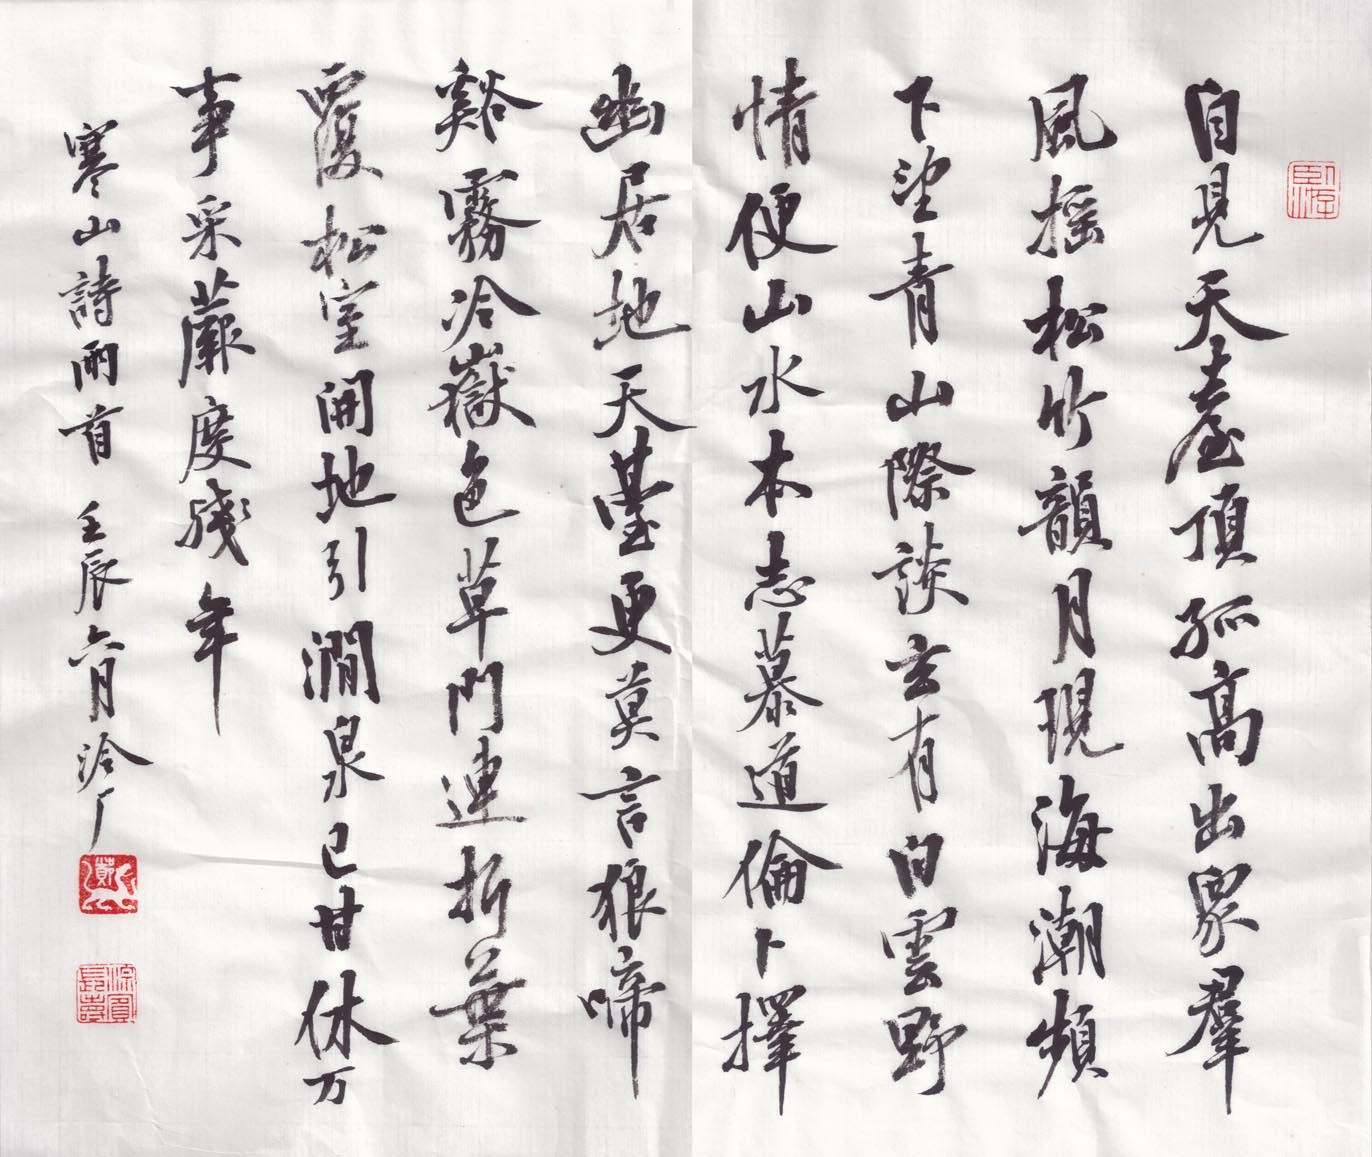 自見天臺頂孤高出眾羣
風搖松竹韻月現海潮頻
下望青山際談玄有白雲野
情便山水本志慕道倫卜擇
幽居地天臺更莫言狼啼
谿霧冷嶽色草門連折葉
覆松室開地引澗泉已甘休万
事采蕨度殘年
寒山詩兩首 壬辰六月 冷厂